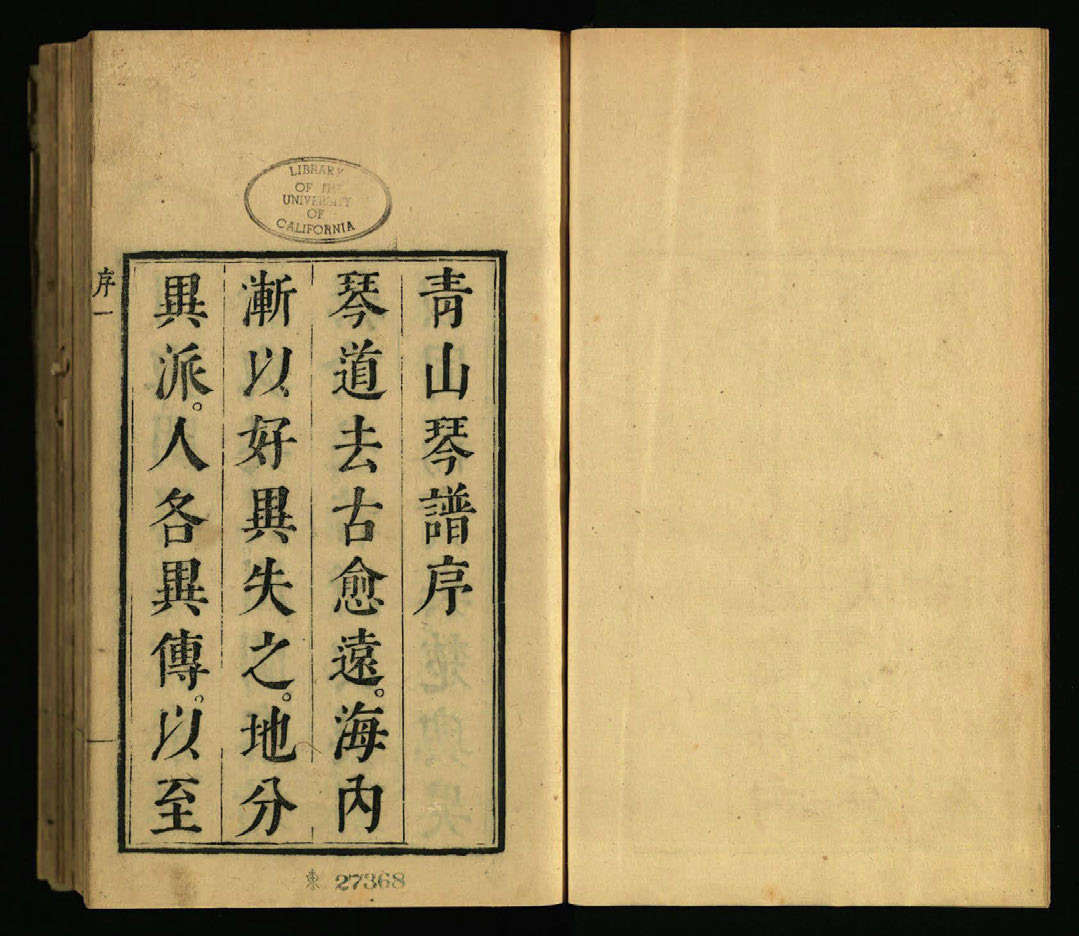 青山琴譜序
琴道去古愈遠。海內
漸以好異失之。地分
異派。人各異傳。以至
序一
LIBRARY
OF THE
UNIVERSITY
OF
CALIFORNIA
東 27368